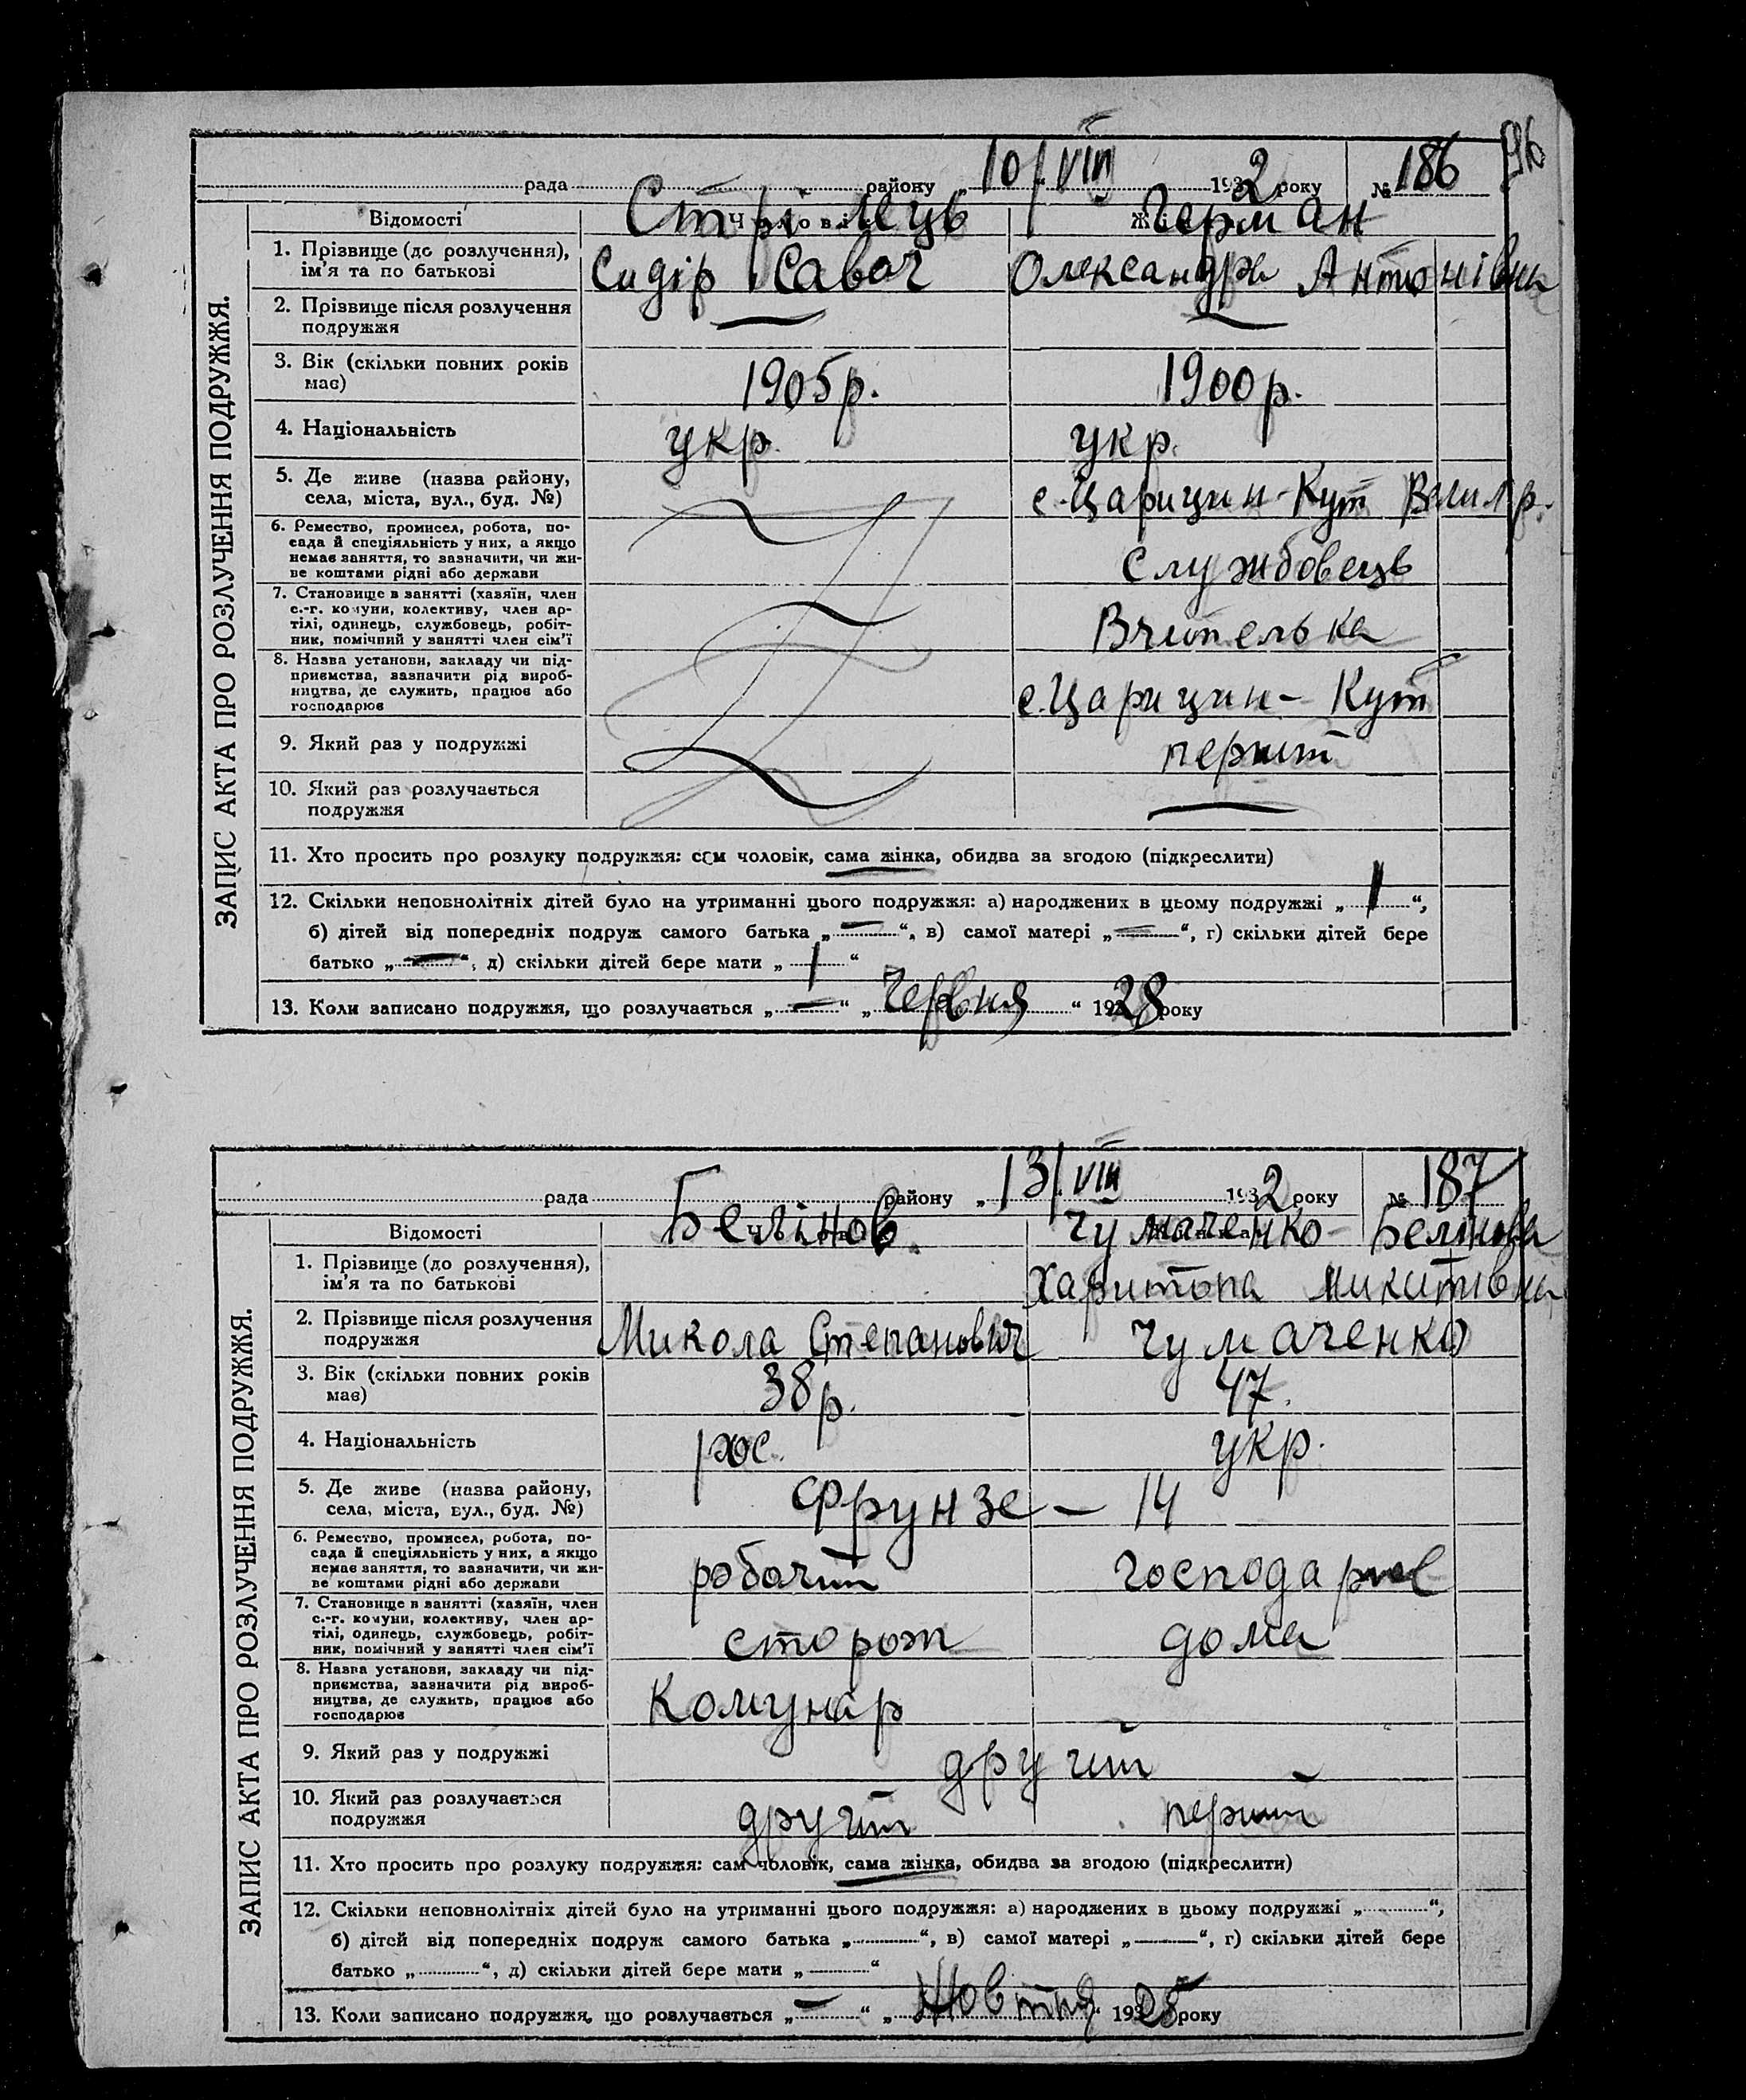 96
рада району „10/VIII 1932 року № 186
ЗАПИС АКТА ПРО РОЗЛУЧЕННЯ ПОДРУЖЖЯ.
Відомості Стрілець Герман
1. Прізвище (до розлучення), ім'я та по батькові Сидір Савович Олександра Антонівна
2. Прізвище після розлучення подружжя — —
3. Вік (скільки повних років має) 1905р. 1900р.
4. Національність укр. укр.
5. Де живе (назва району, села, міста, вул., буд. №) с. Царицин-Кут
6. Ремество, промисел, робота, по-
сада й спеціяльність у них, а якщо
немає заняття, то зазначити, чи жи-
ве коштами рідні або держави Службовець
7. Становище в занятті (хазяїн, член
с.-г. комуни, колективу, член ар-
тілі, одинець, службовець, робіт-
ник, помічний у занятті член сім'ї Вчителька
8. Назва установи, закладу чи під-
приємства, зазначити рід вироб-
ництва, де служить, працює або
господарює с. Царицин-Кут
9. Який раз у подружжі перший
10. Який раз розлучається подружжя —
11. Хто просить про розлуку подружжя: сам чоловік, сама жінка, обидва за згодою (підкреслити)
12. Скільки неповнолітніх дітей було на утриманні цього подружжя: а) народжених в цьому подружжі „1“,
б) дітей від попередніх подруж самого батька „—“, в) самої матері „—“, г) скільки дітей бере
батько „—“, д) скільки дітей бере мати „1“
13. Коли записано подружжя, що розлучається „—“ „Червня“ 1928 року
рада району „13/VIII 1932 року № 187
ЗАПИС АКТА ПРО РОЗЛУЧЕННЯ ПОДРУЖЖЯ.
Відомості Белінов Чумаченко-Белінова
1. Прізвище (до розлучення), ім'я та по батькові Микитівна
2. Прізвище після розлучення подружжя Микола Степанович Чумаченко
3. Вік (скільки повних років має) 38р. 47.
4. Національність рос. укр.
5. Де живе (назва району, села, міста, вул., буд. №) Фрунзе — 14
6. Ремество, промисел, робота, по-
сада й спеціяльність у них, а якщо
немає заняття, то зазначити, чи жи-
ве коштами рідні або держави робочий господарює
7. Становище в занятті (хазяїн, член
с.-г. комуни, колективу, член ар-
тілі, одинець, службовець, робіт-
ник, помічний у занятті член сім'ї сторож дома
8. Назва установи, закладу чи під-
приємства, зазначити рід вироб-
ництва, де служить, працює або
господарює Комунар
9. Який раз у подружжі другий
10. Який раз розлучається подружжя другий перший
11. Хто просить про розлуку подружжя: сам чоловік, сама жінка, обидва за згодою (підкреслити)
12. Скільки неповнолітніх дітей було на утриманні цього подружжя: а) народжених в цьому подружжі „“,
б) дітей від попередніх подруж самого батька „“, в) самої матері „—“, г) скільки дітей бере
батько „“, д) скільки дітей бере мати „—“
13. Коли записано подружжя, що розлучається „—“ „Жовтня“ 1925 року